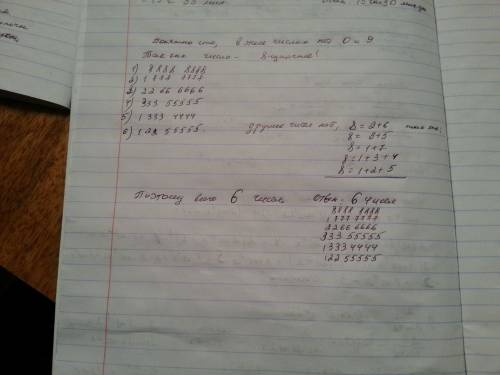 12 ч 30 мин
Понятно что, в этих числах нет 0 и 9
Так как число - 8-значное!
1) 8888 8888
2) 1 777 7777
3) 22 66 6666
4) 333 55555
5) 1 333 4444
6) 1 22 55555. других чисел нет, 8=2+6
8=3+5
8=1+7
8=1+3+4
8=1+2+5
Поэтому всего 6 чисел Ответ: 6 чисел
8888 8888
1777 7777
2266 6666
333 55555
1333 4444
122 55555